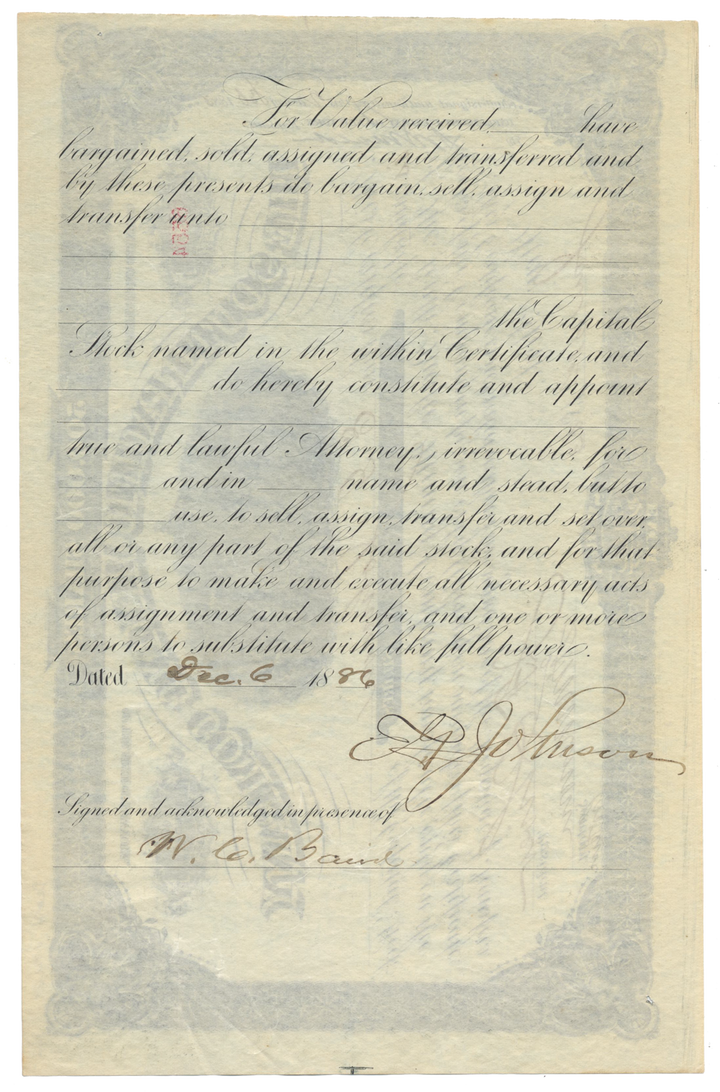 For Value received, have
bargained, sold, assigned and transferred and
by these presents do bargain, sell, assign and
transfer unto
the Capital
Stock named in the within Certificate, and
do hereby constitute and appoint
true and lawful Attorney, irrevocable, for
and in name and stead, but to
use, to sell, assign, transfer and set over,
all or any part of the said stock, and for that
purpose to make and execute all necessary acts
of assignment and transfer, and one or more
persons to substitute with like full power.
Dated Dec. 6 1886
Johnson
Signed and acknowledged in presence of
W. C. Baird